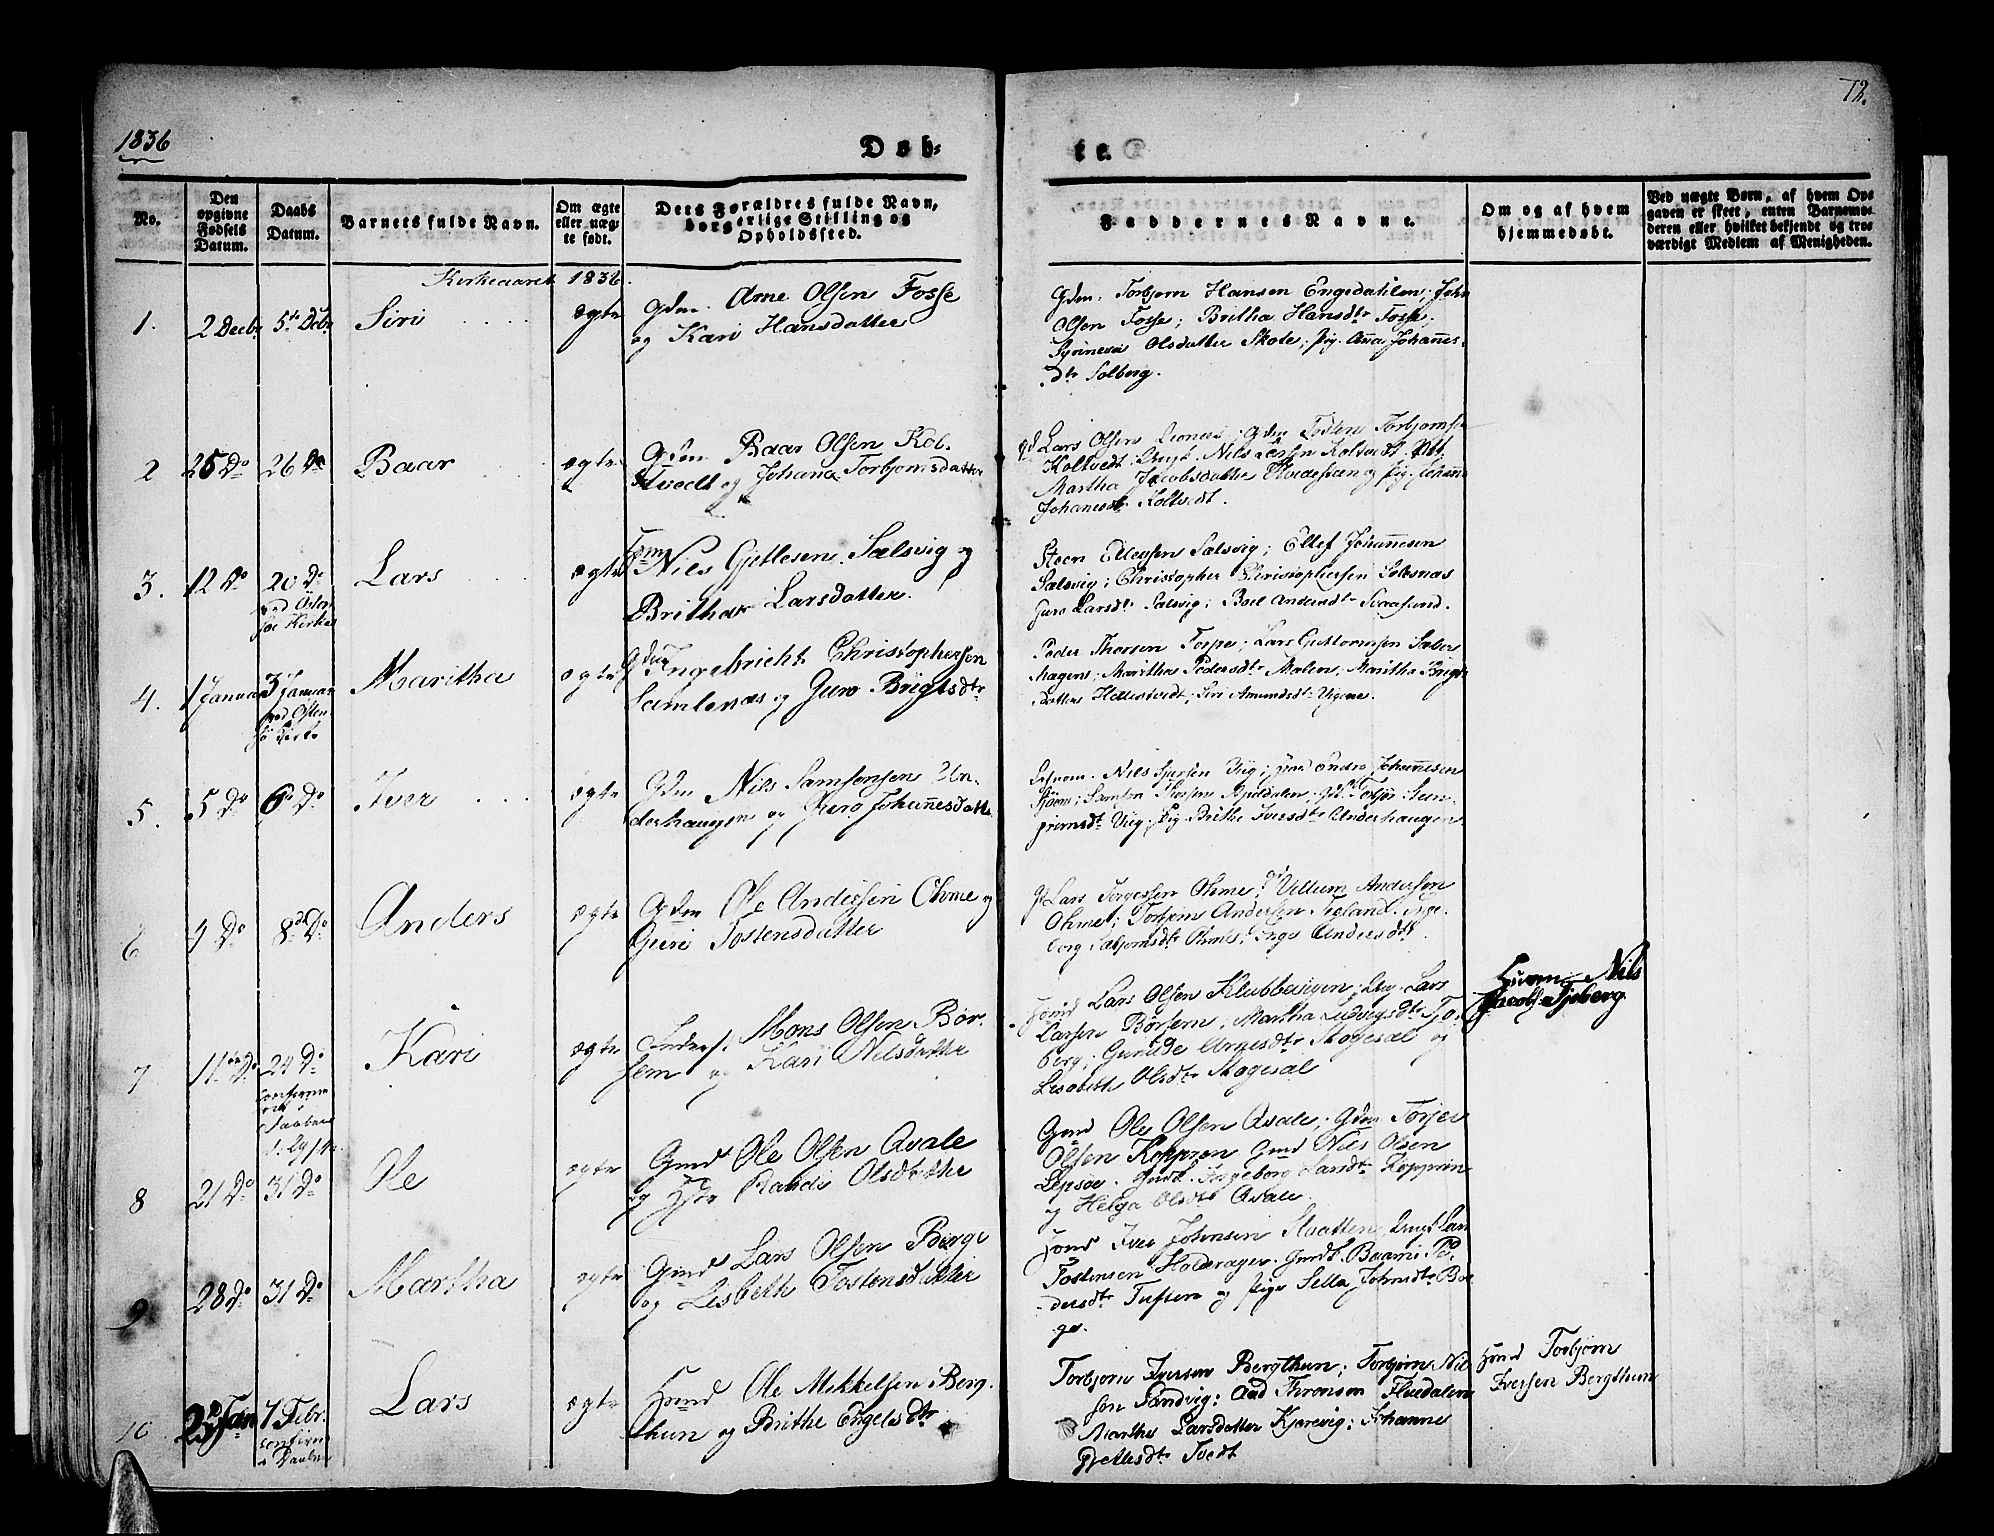 1836
Døb-
te.
12.
No.
Den opgivne Fødsels Datum.
Daabs Datum.
Barnets fulde Navn.
Om ægte eller uægte født.
Dets Forældres fulde Navn, borgerlige Stilling og Opholdssted.
Faddernes Navne.
Om og af hvem hjemmedøbt.
Ved uægte Børn, af hvem Opgaven er skeet, enten Barnemoderen eller hvilket bekjendt og troværdigt Medlem af Menigheden.
Kirkeaaret 1836.
1.
2 Decbr
5te Dcbr
Siri
ægte
Gdm. Arne Olsen Fosse
og Kari Hansdatter
Gdm. Torbjørn Hansen Engedahlen; John
Olsen Fosse; Britha Hansdtr Fosse;
Olsdatter Skote; Pig. Anna Johannes-
dtr Solberg.
2
25 Do
26 Do
Baar
ægte
Gdm Baar Olsen Kol-
tvedt og Johana Torbjørnsdatter
Lars Olsen
Koltvedt; Nils Koltvedt
Martha Jacobsdatter og Pig.
Johanesdtr Koltvedt.
3.
12 Do
20 Do
ved Osten-
søe Kirke
Lars
ægte
Nils Gjetlesen Sælsvig og
Britha Larsdatter.
Steen Ellefsen Sælsvig; Ellef Johannesen
Sælsvig; Christopher Christophersen Solesnæs
Guro Larsdtr Sælsvig; Boel Andersdtr Svaasand.
4.
1 Januar
3 Januar
ved Osten-
sø Kirke
Maritha
ægte
Gdm Ingebricht Christophersen
Samlenæs og Guro Brigtsdtr
Peder Thorsen Torpe; Lars Guttormsen
Maritha Pedersdtr Malen; Maritha Brigts-
datter; Siri Amundsdtr
5.
5 Do
6te Do
Iver
ægte
Gdm Nils Samsonsen Un-
derhaugen og Guro Johannesdatter
Nils Sjursen Viig; Endre Johannesen
Samson
Viig. Pig. Brithe Iversdtr Underhaugen
6
4 Do
8de Do
Anders
ægte
Gdm Ole Andersen Ohme og
Guri Tostensdatter
Lars Torgersen Ohme; Villum Andersen
Ohme; Torbjørn Andersen Inge-
borg Ohme; Inga Andersdtr
7
11te Do
24 Do
confirme-
ret i
Daaben
Kari
ægte
Inders. Mons Olsen Bør-
sem og Kari Nilsdatter
Huusm. Lars Olsen Klubbevigen; Ung. Lars
Larsen Børsem; Martha Ludvigsdtr Sjo-
berg; Gunilde Arnesdtr Mogesæl og
Lisabeth Olsdtr Mogesæl
Nils
Jacobs. Sjoberg
8
21 Do
31 Do
Ole
ægte
Gmd Ole Olsen Axale
og Hstr Randi Olsdatter
Gmd Ole Olsen Axale; Gdm Torgier
Olsen Koppren Gmd Nils Olsen
Lepsøe. Ingeborg Larsdtr Kopprin
og Helga Olsdtr Axale.
9
28 Do
31 Do
Martha
ægte
Gmd Lars Olsen Berge
og Lisbeth Tostensdatter
Hmd Iver Johnsen Staatten; Ungk Lars
Tostensen Gmdk. Pe-
dersdtr Tuften og Pige Sella Johnsdtr Ber-
ge.
10
25 Jan
7 Febr.
confirm
i Daaben
Lars
ægte
Hmd Ole Mikkelsen Berg-
thun og Brithe Engelsdtr
Torbjørn Iversen Bergthun; Torbjørn Nil-
sen Sandvig; Aad Thronsen Fludalen
Martha Larsdatter Kjærevig; Johannes
Gjetlesdtr Tvedt
Hmd Torbjørn
Iversen Bergthun